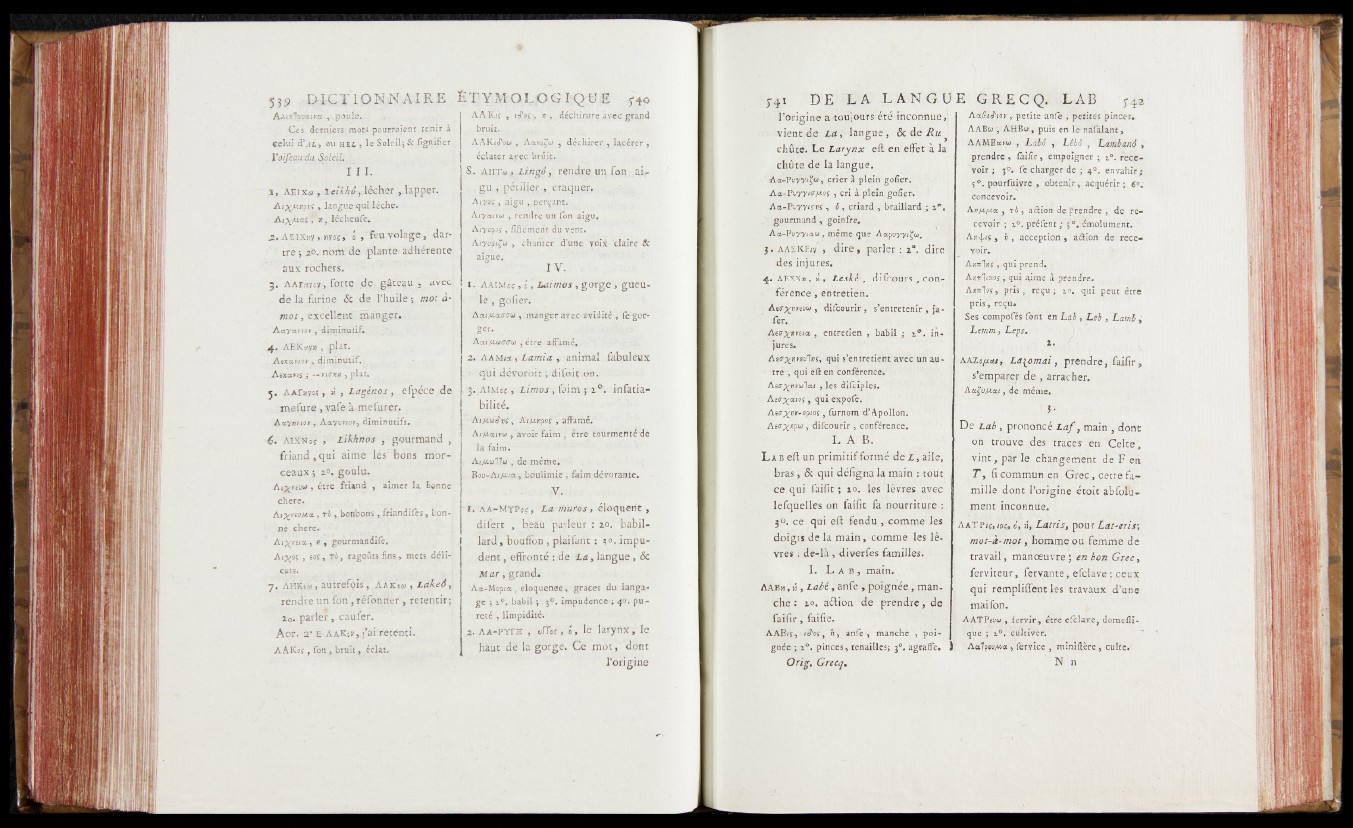 539 DICTIONNAIRE ÉTYMOLOGIQUE 540
, poule.
Ces derniers mots pourroient tenir à
celui d'AL, ou HEL, le Soleil; & signifier
l'oiseau du Soleil.
III.
1, ΛΕΙΧω, Leikhô, lécher, lapper.
, langue qui léche.
, lécheuse.
2. ΛΕΙΧην, ηνος, ὁ, feu volage, dar-
tre; 2°. nom de plante adhérente
aux rochers.
3. , sorte de gâteau, avec
de la farine & de l'huile; mot à-
mot, excellent manger.
, diminutif.
4. , plat.
, diminutif.
, plat.
5. ΛΑΓηνος, ἡ, Lagênos, espéce de
mesure, vase à mesurer.
Λαγηνιον, Λαγυνιον, diminutifs.
6. ΛΙΧΝος, Likhnos, gourmand,
friand, qui aime les bons mor-
ceaux; 2°. goulu.
Λιχνευω, être friand, aimer la bonne
chere.
Λιχνευμα, τὸ, bonbons, friandises, bon-
ne chere.
Λιχνεια, ἡ, gourmandise.
, εος, τὸ, ragoûts fins, mets déli-
cats.
7. ΛΗΚεω, autrefois, ΛΑΚεω, Lakeô,
rendre un son, résonner, retentir;
2°. parler, causer.
Aor. 2e Ε-ΛΑΚον, j'ai retenti.
ΛΑΚος, son, bruit, éclat.
ΛΑΚις, ιδος, ἡ, déchirure avec grand
bruit.
ΛΑΚιζω, déchirer, lacérer,
éclater avec bruit.
8. , Lingô, rendre un son ai-
gu, pétiller, craquer.
Λιγυς, aigu, perçant.
Λιγαινω, rendre un son aigu.
, sifflement du vent.
Λιγυριζω, chanter d'une voix claire &
aigue.
IV.
1. ΛΑΙΜος, ὁ, Laimos, gorge, gueu-
le, gosier.
Λαιμασσω, manger avec avidité, se gor-
ger.
Λαιμωσσω, être affamé.
2. ΛΑΜια, Lamia, animal fabuleux
qui dévoroit, disoit-on.
3. ΛΙΜος, Limos, faim; 2°. insatia-
bilité.
Λιμωδης, Λιμηρος, affamé.
Λιμαινω, avoir faim, être tourmenté de
la faim.
Λιμωττω, de même.
Βου-Λιμια, boulimie, faim dévorante.
V.
1. ΛΑ-ΜΥΡος, La-muros, éloquent,
disert, beau parleur: 2°. babil-
lard, bouffon, plaisant; 3°. impu-
dent, effronté: de La, langue, &
Mar, grand.
Λα-Μυρια, éloquence, graces du langa-
ge; 2°. babil; 3°. impudence; 4°. pu-
reté, limpidité.
2. ΛΑ-ΡΥΓΞ, υγγος, ὁ, le larynx, le
haut de la gorge. Ce mot, dont
l'origine
541 DE LA LANGUE GRECQ. LAB 542
l'origine a toujours été inconnue,
vient de La, langue, & de Ru,
chûte. Le Larynx est en effet à la
chûte de la langue.
Λα-Ρυγγιζω, crier à plein gosier.
Λα-Ρυγγισμος, cri à plein gosier.
, ὁ, criard, braillard; 2°.
gourmand, goinfre.
Λα-Ρυγγιαω, même que Λαρυγγιζω.
3. ΛΑΣΚΕιν, dire, parler: 2°. dire
des injures.
4. ΛΕΣΧη, ἡ, Leskê, discours, con-
férence, entretien.
Λεσχηνευω, discourir, s'entretenir, ja-
ser.
Λεσχηνεια, entretien, babil; 2°. in-
jures.
, qui s'entretient avec un au-
tre, qui est en conférence.
, les disciples.
, qui expose.
, surnom d'Apollon.
, discourir, conférence.
LAB.
LAB est un primitif formé de L, aile,
bras, & qui désigna la main: tout
ce qui saisit; 2°. les lèvres avec
lesquelles on saisit sa nourriture:
3°. ce qui est fendu, comme les
doigts de la main, comme les lè-
vres: de-là, diverses familles.
I. LAB, main.
ΛΑΒη, ἡ, Labê, anse, poignée, man-
che: 2°. action de prendre, de
saisir, saisie.
ΛΑΒις, ιδος, ἡ, anse, manche, poi-
gnée; 2°. pinces, tenailles; 3°. agraffe.
Λαβιδιον, petite anse, petites pinces.
ΛΑΒω, ΛΗΒω, puis en le nasalant,
ΛΑΜΒανω, Labô, Lêbô, Lambanô,
prendre, saisir, empoigner; 2°. rece-
voir; 3°. se charger de; 4°. envahir;
5°. poursuivre, obtenir, acquérir; 6°.
concevoir.
Λημμα, τὸ, action de prendre, de re-
cevoir; 2°. présent; 3°. émolument.
Ληψις, ἡ, acception, action de rece-
voir.
Ληπτης, qui prend.
, qui aime à prendre.
Ληπτος, pris, reçu; 2°. qui peut être
pris, reçu.
Ses composés sont en Lab, Leb, Lamb,
Lemm, Leps.
2.
ΛΑΖομαι, Lazomai, prendre, saisir,
s'emparer de, arracher.
Λαζυμαι, de même.
3.
De Lab, prononcé Laf, main, dont
on trouve des traces en Celte,
vint, par le changement de F en
T, si commun en Grec, cette fa-
mille dont l'origine étoit absolu-
ment inconnue.
ΛΑΤΡις, ιος, ὁ, ἡ, Latris, pour Lat-eris;
mot-à-mot, homme ou femme de
travail, manœuvre; en bon Grec,
serviteur, servante, esclave: ceux
qui remplissent les travaux d'une
maison.
ΛΑΤΡευω, servir, être esclave, domesti-
que; 2°. cultiver.
Λατρευμα, service, ministère, culte.
Orig. Grecq.
N n